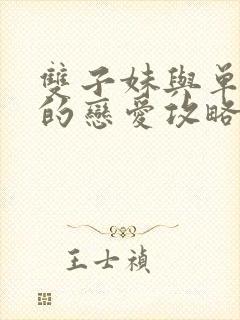 雙子妹與單
的戀愛攻略
王士禎